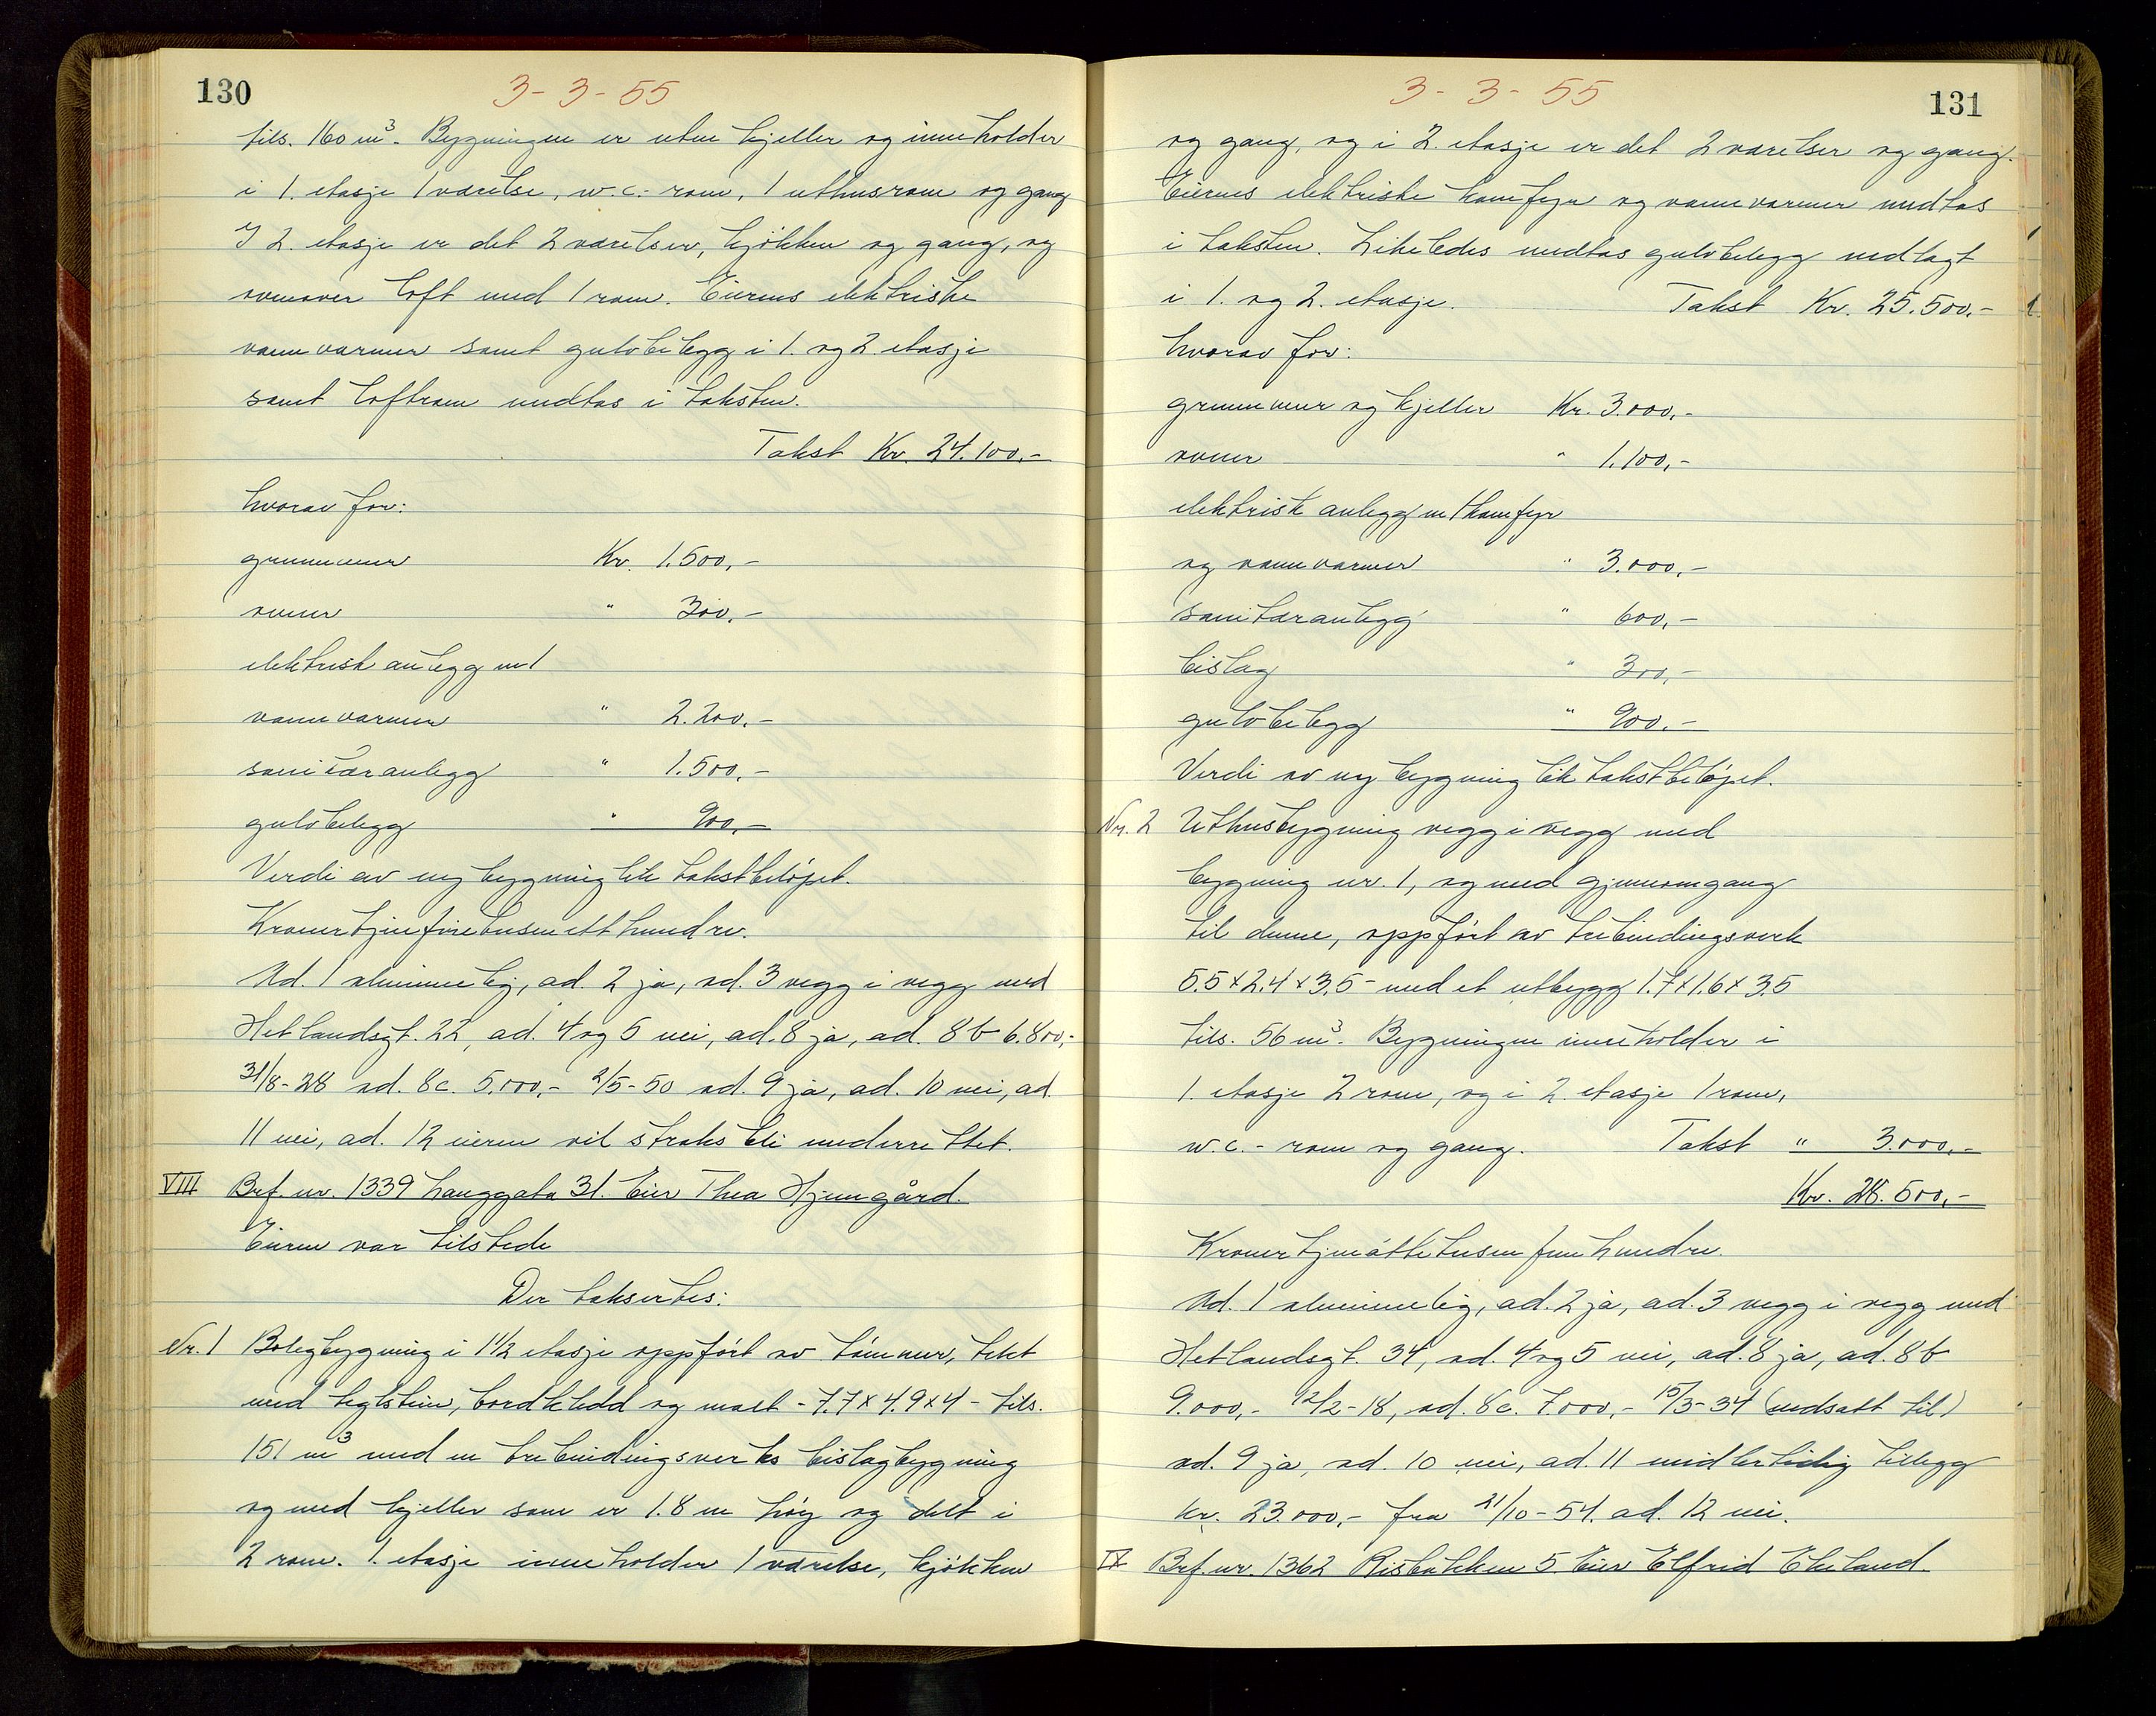 130
3-3-55
tils. 160 m³. Bygningen er uten kjeller og inneholder
i 1. etasje 1 værelse, w.c.-rom, 1 uthusrom og gang
I 2. etasje er det 2 værelser, kjökken og gang, og
ovenover loft med 1 rom. Eierens elektriske
vannvarmer samt gulvbelegg i 1. og 2. etasje
samt loftrom medtas i taksten.
Takst Kr. 24.100,-
hvorav for:
grunnmur Kr. 1.500,-
ovner " 300,-
elektrisk anlegg m/
vannvarmer " 2.200,-
sanitæranlegg " 1.500,-
gulvbelegg " 900,-
Verdi av ny bygning lik takstbelöpet.
Kroner tjuefiretusenetthundre.
Ad. 1 alminnelig, ad. 2 ja, ad. 3 vegg i vegg med
Hetlandsgt. 22, ad. 4 og 5 nei, ad. 8 ja, ad. 8b 6.800,-
31/8-28 ad. 8c. 5.000,- 2/5-50 ad. 9 ja, ad. 10 nei, ad.
11 nei, ad. 12 eieren vil straks bli underrettet.
VIII Brf. nr. 1339 Langgata 31. Eier Thea Hjemgård.
Eieren var tilstede
Der taksertes:
Nr. 1 Boligbygning i 1 1/2 etasje oppfört av tömmer, tekt
med teglstein, bordkledd og malt - 7.7 x 4.9 x 4 - tils.
151 m³ med en trebindingsverks bislagbygning
og med kjeller som er 1.8 m höy og delt i
2 rom. 1. etasje inneholder 1 værelse, kjökken
3-3-55
131
og gang, og i 2. etasje er det 2 værelser og gang.
Eierens elektriske komfyr og vannvarmer medtas
i taksten. Likeledes medtas gulvbelegg nedlagt
i 1. og 2. etasje. Takst Kr. 25.500,-
hvorav for:
grunnmur og kjeller Kr. 3.000,-
ovner " 1.100,-
elektrisk anlegg m/komfyr
og vannvarmer " 3.000,-
sanitæranlegg " 600,-
bislag " 300,-
gulvbelegg " 900,-
Verdi av ny bygning lik takstbelöpet.
Nr. 2 Uthusbygning vegg i vegg med
bygning nr. 1, og med gjennomgang
til denne, oppfört av trebindingsverk
5.5 x 2.4 x 3.5 - med et utbygg 1.7 x 1.6 x 3.5
tils. 56 m³. Bygningen inneholder i
1. etasje 2 rom, og i 2. etasje 1 rom,
w.c.-rom og gang. Takst " 3.000,-
Kr. 28.500,-
Kroner tjueåttetusenfemhundre.
Ad. 1 alminnelig, ad. 2 ja, ad. 3 vegg i vegg med
Hetlandsgt. 34, ad. 4 og 5 nei, ad. 8 ja, ad. 8b
9.000,- 12/2-18, ad. 8c. 7.000,- 15/3-34 (nedsatt til)
ad. 9 ja, ad. 10 nei, ad. 11 midlertidig tillegg
kr. 23.000,- fra 21/10-54. ad. 12 nei.
IX Brf. nr. 1362 Risbakken 5. Eier Elfrid Ekeland.